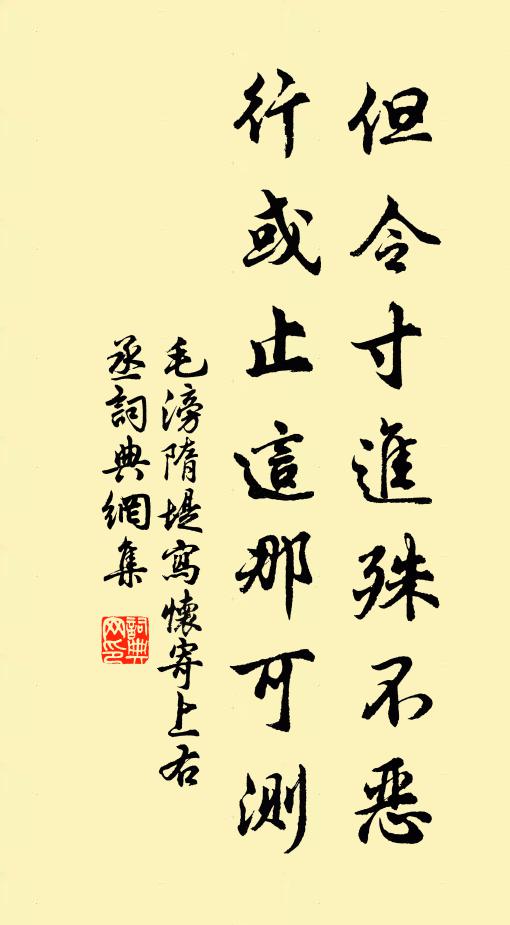 但令寸進殊不惡
行或止這那可測
毛滂隋堤寫懷寄上右
丞詞典網集
詞典網印